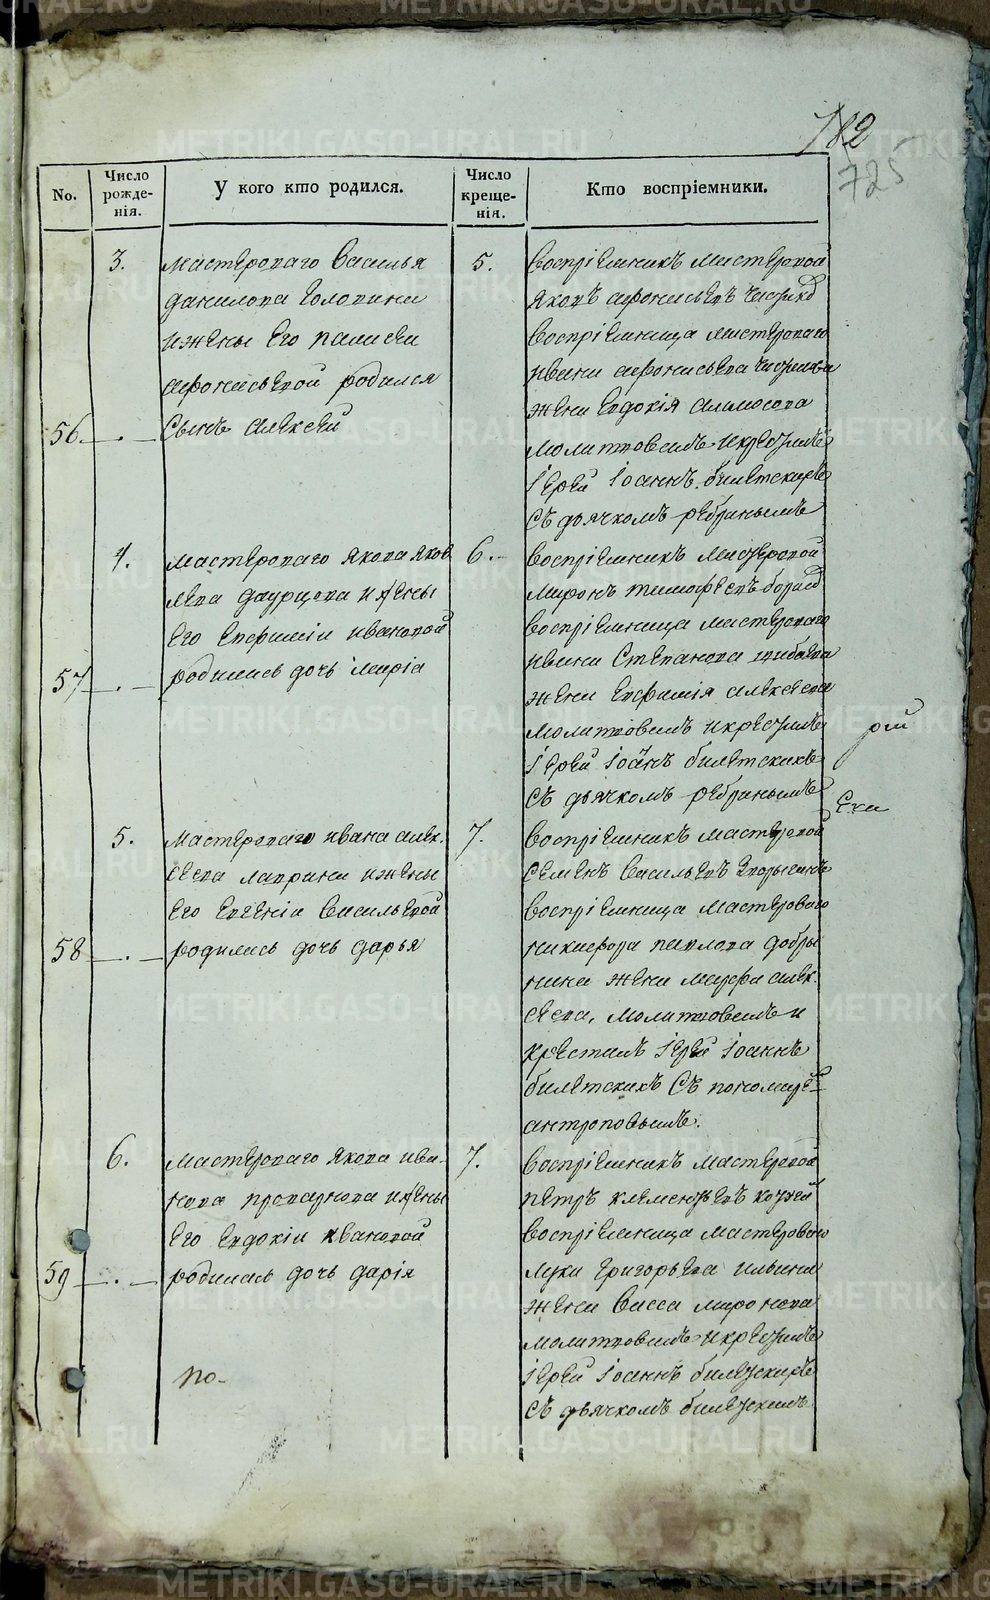 182
725
No.
Число рожде-нія.
У кого кто родился.
Число креще-нія.
Кто воспріемники.
3.
Мастероваго Василья
Данилова Головина
и жены его
Афонасьевой родился
56
сынъ Алексей
5.
Воспріемникъ мастеровой
Яковъ Афонасьевъ
Воспріемница мастероваго
Ивана Афонасьева
жена Евдокія
молитвовалъ и крестилъ
Іерей Іоаннъ Билетскихъ
съ дьячкомъ Ребринымъ
4.
Мастероваго Якова Яков
лева Даурцова и жены
его Евфиміи Ивановой
57
родилась дочь Марія
6.
Воспріемникъ мастеровой
Миронъ Тимофеевъ
Воспріемница мастероваго
Ивана Степанова
жена Евфимія Алексеева
молитвовалъ и крестилъ
Іерей Іоаннъ Билетскихъ
съ дьячкомъ Ребринымъ
рій
Ека
5.
Мастероваго Ивана Алек.
сеева Лаврина и жены
его Евгеніи Васильевой
58
родилась дочь Дарья
7.
Воспріемникъ мастеровой
Семенъ Васильевъ
Воспріемница мастероваго
Никифора Павлова Добры
нина жена Марфа Алек.
сеева, молитвовалъ и
крестилъ Іерей Іоаннъ
Билетскихъ съ пономаремъ
Антроповымъ.
6.
Мастероваго Якова Ива-
нова и жены
его Евдокіи Ивановой
59
родилась дочь Дарія
7.
Воспріемникъ мастеровой
Петръ Клементьевъ
Воспріемница мастероваго
Луки Григорьева Ильина
жена Васса Миронова
молитвовалъ и крестилъ
Іерей Іоаннъ Билетскихъ
съ дьячкомъ Билетскимъ
по-
METRIKI.GASO-URAL.RU